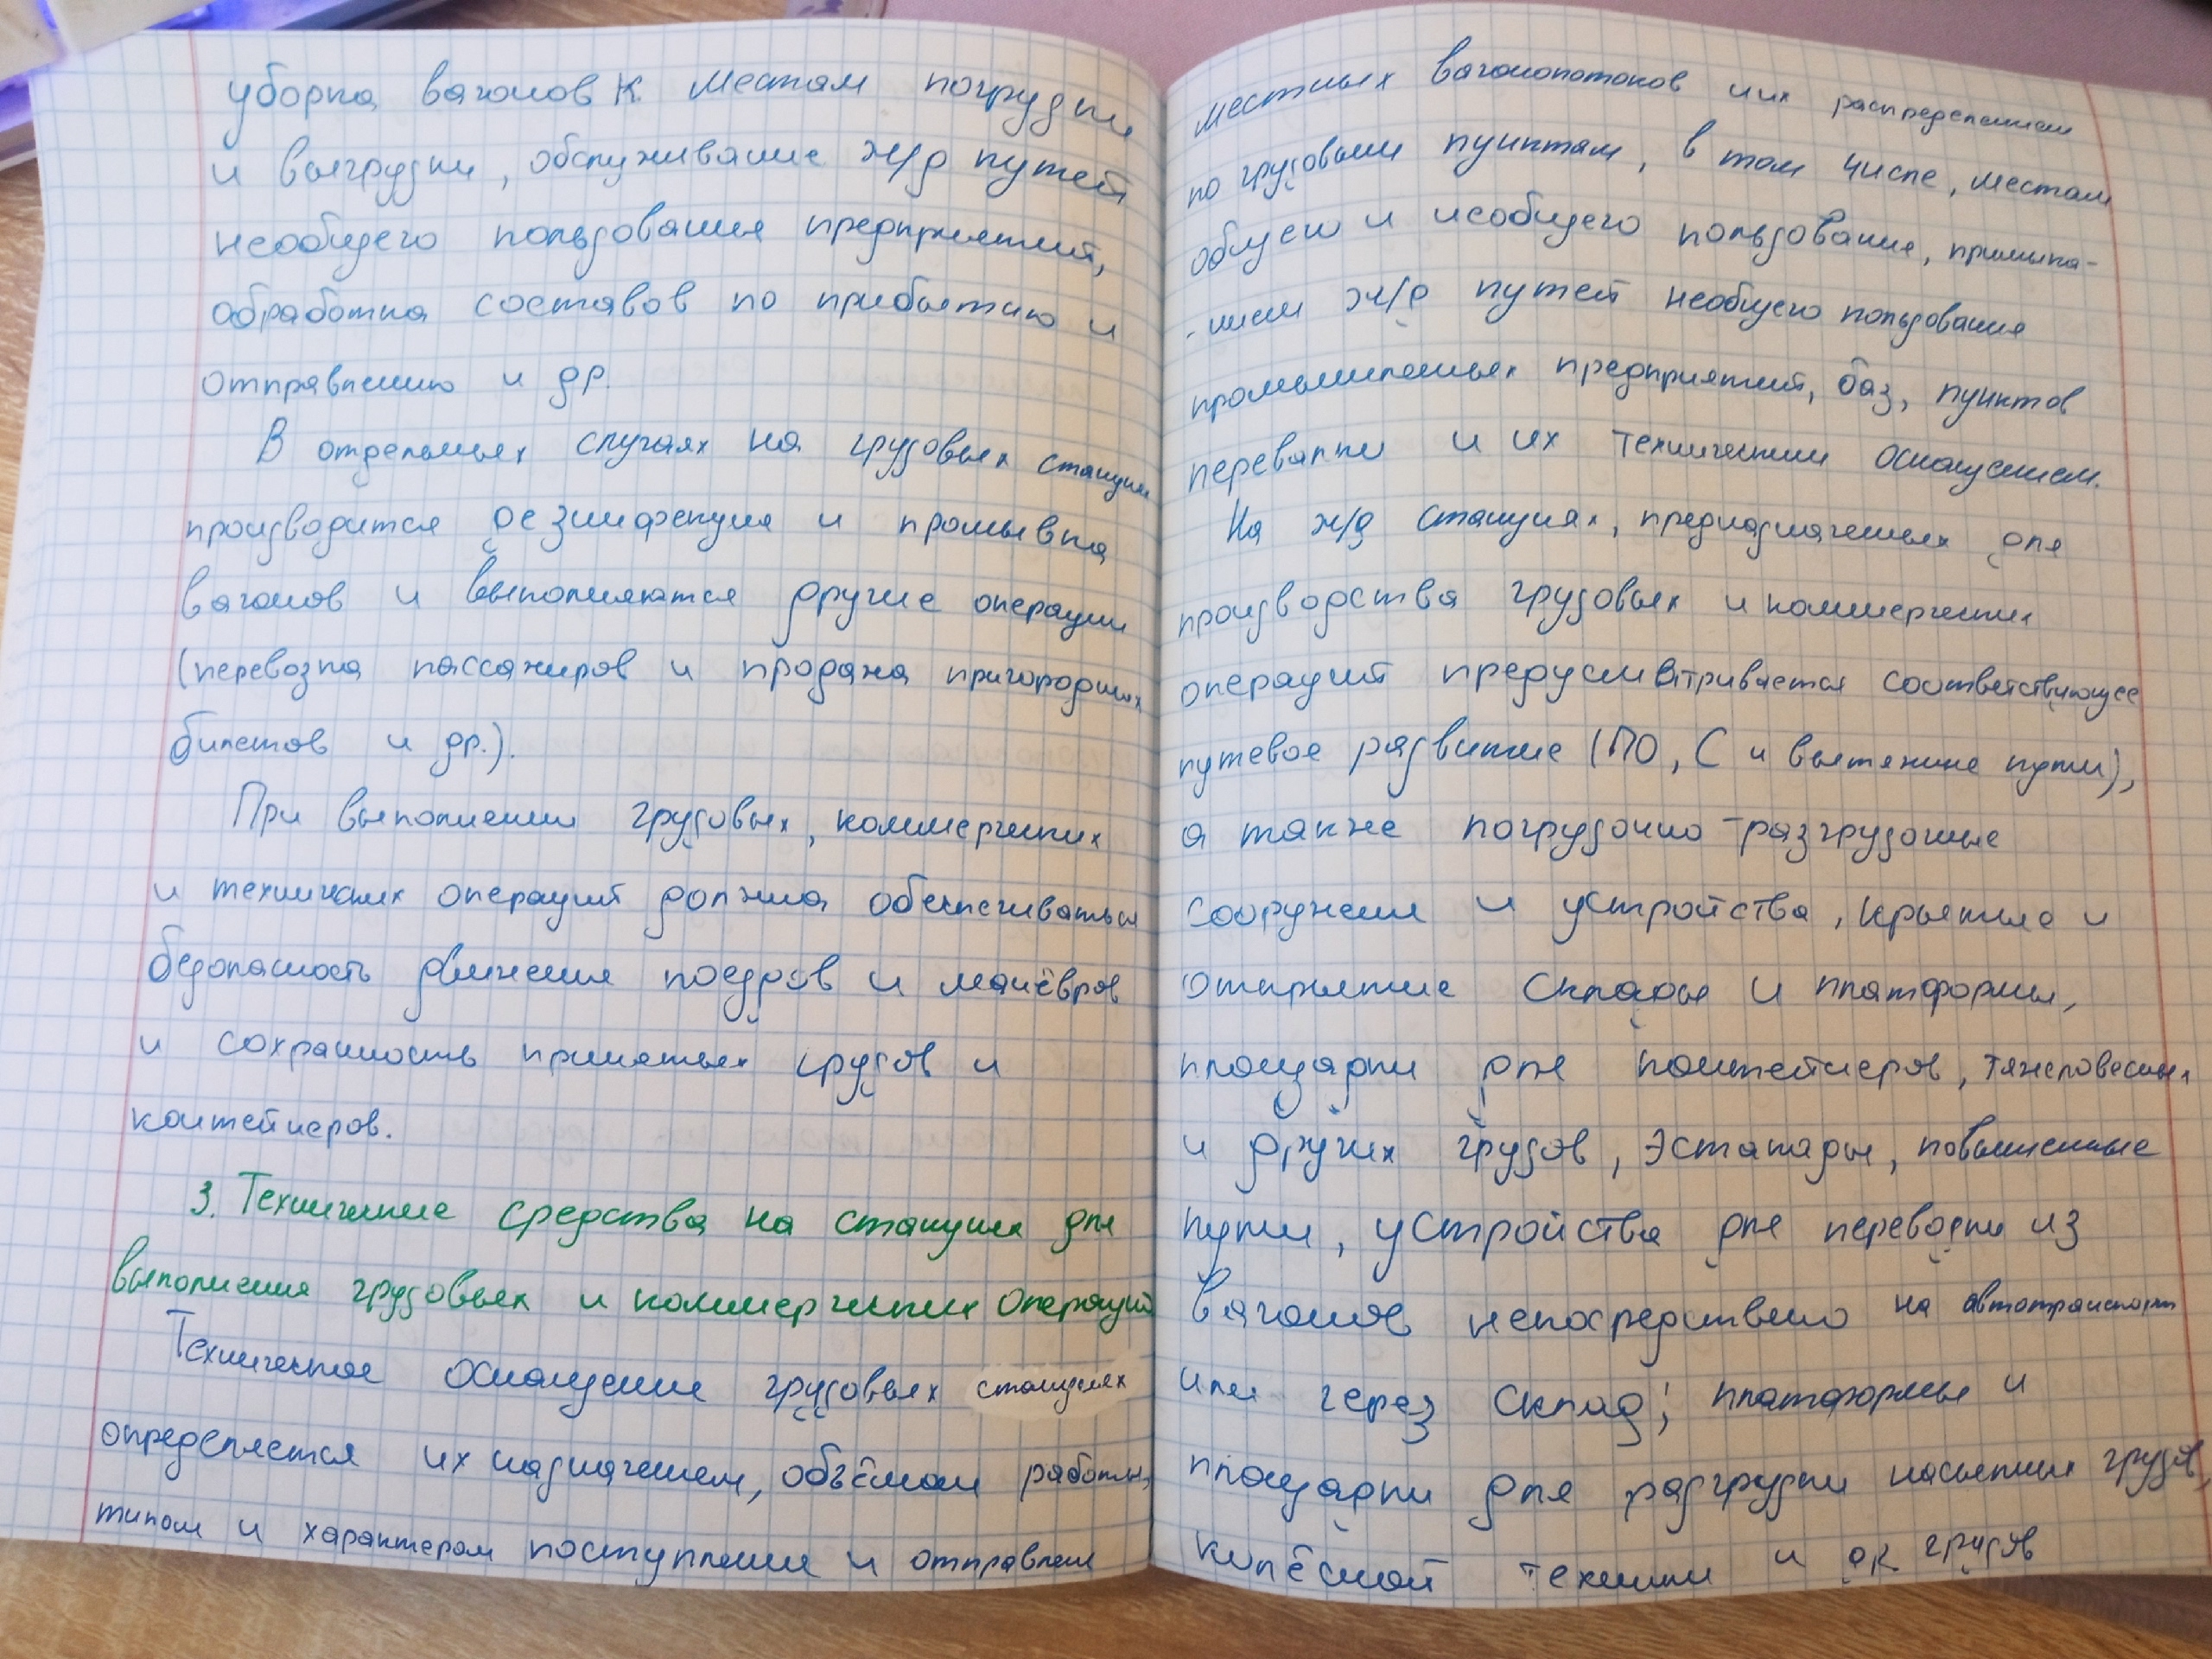 уборка вагонов к местам погрузки
и выгрузки, обслуживание ж/д путей
необщего пользования предприятий,
обработка составов по прибытию и
отправлению и др.
В отдельных случаях на грузовых станциях
производится дезинфекция и промывка
вагонов и выполняются другие операции
(перевозка пассажиров и продажа пригородных
билетов и др.).
При выполнении грузовых, коммерческих
и технических операций должна обеспечиваться
безопасность движения поездов и манёвров
и сохранность принятых грузов и
контейнеров.
3. Технические средства на станциях для
выполнения грузовых и коммерческих операций
Техническое оснащение грузовых станциях
определяется их назначением, объёмом работы,
типом и характером поступления и отправлен
местных вагонопотоков и их распределением
по грузовым пунктам, в том числе, местам
общего и необщего пользования, примыка-
-нием ж/д путей необщего пользования
промышленных предприятий, баз, пунктов
перевалки и их техническим оснащением.
На ж/д станциях, предназначенных для
производства грузовых и коммерческих
операций предусматривается соответствующее
путевое развитие (ПО, С и вытяжные пути),
а также погрузочно-разгрузочные
сооружения и устройства, крытые и
открытые склады и платформы,
площадки для контейнеров, тяжеловесных
и других грузов, эстакады, повышенные
пути, устройства для перевозки из
вагонов непосредственно на автотранспорт
или через склад; платформы и
площадки для разгрузки насыпных грузов,
колёсной техники и др грузов